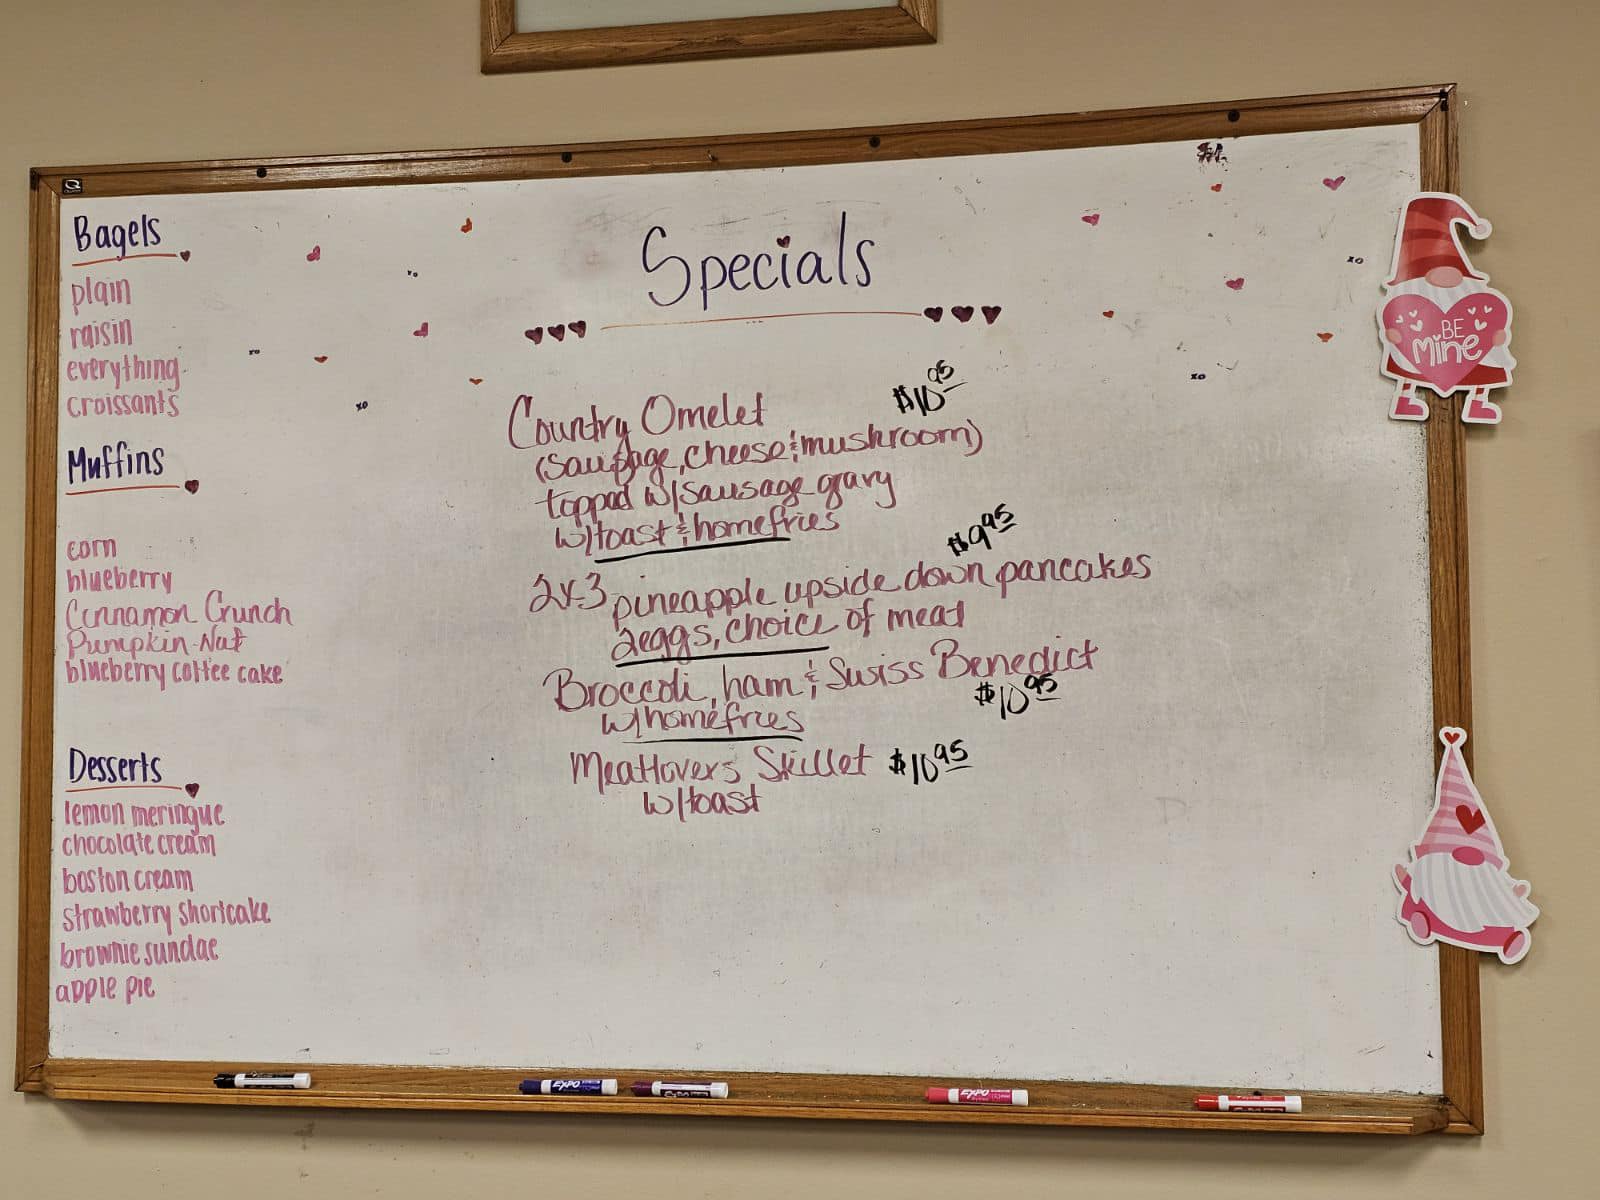 Bagels
plain
raisin
everything
croissants
Muffins
corn
blueberry
Cinnamon Crunch
Pumpkin-Nut
blueberry coffee cake
Desserts
lemon meringue
chocolate cream
boston cream
strawberry shortcake
brownie sundae
apple pie
Specials
Country Omelet $10.95
(Sausage, cheese & mushroom)
topped w/sausage gravy
w/toast & homefries
$9.95
2x3 pineapple upside down pancakes
2eggs, choice of meat
Broccoli, ham & Swiss Benedict
w/homefries $10.95
Meatlovers Skillet $10.95
w/toast
xo
xo
xo
xo
xo
BE
Mine
EXPO
EXPO